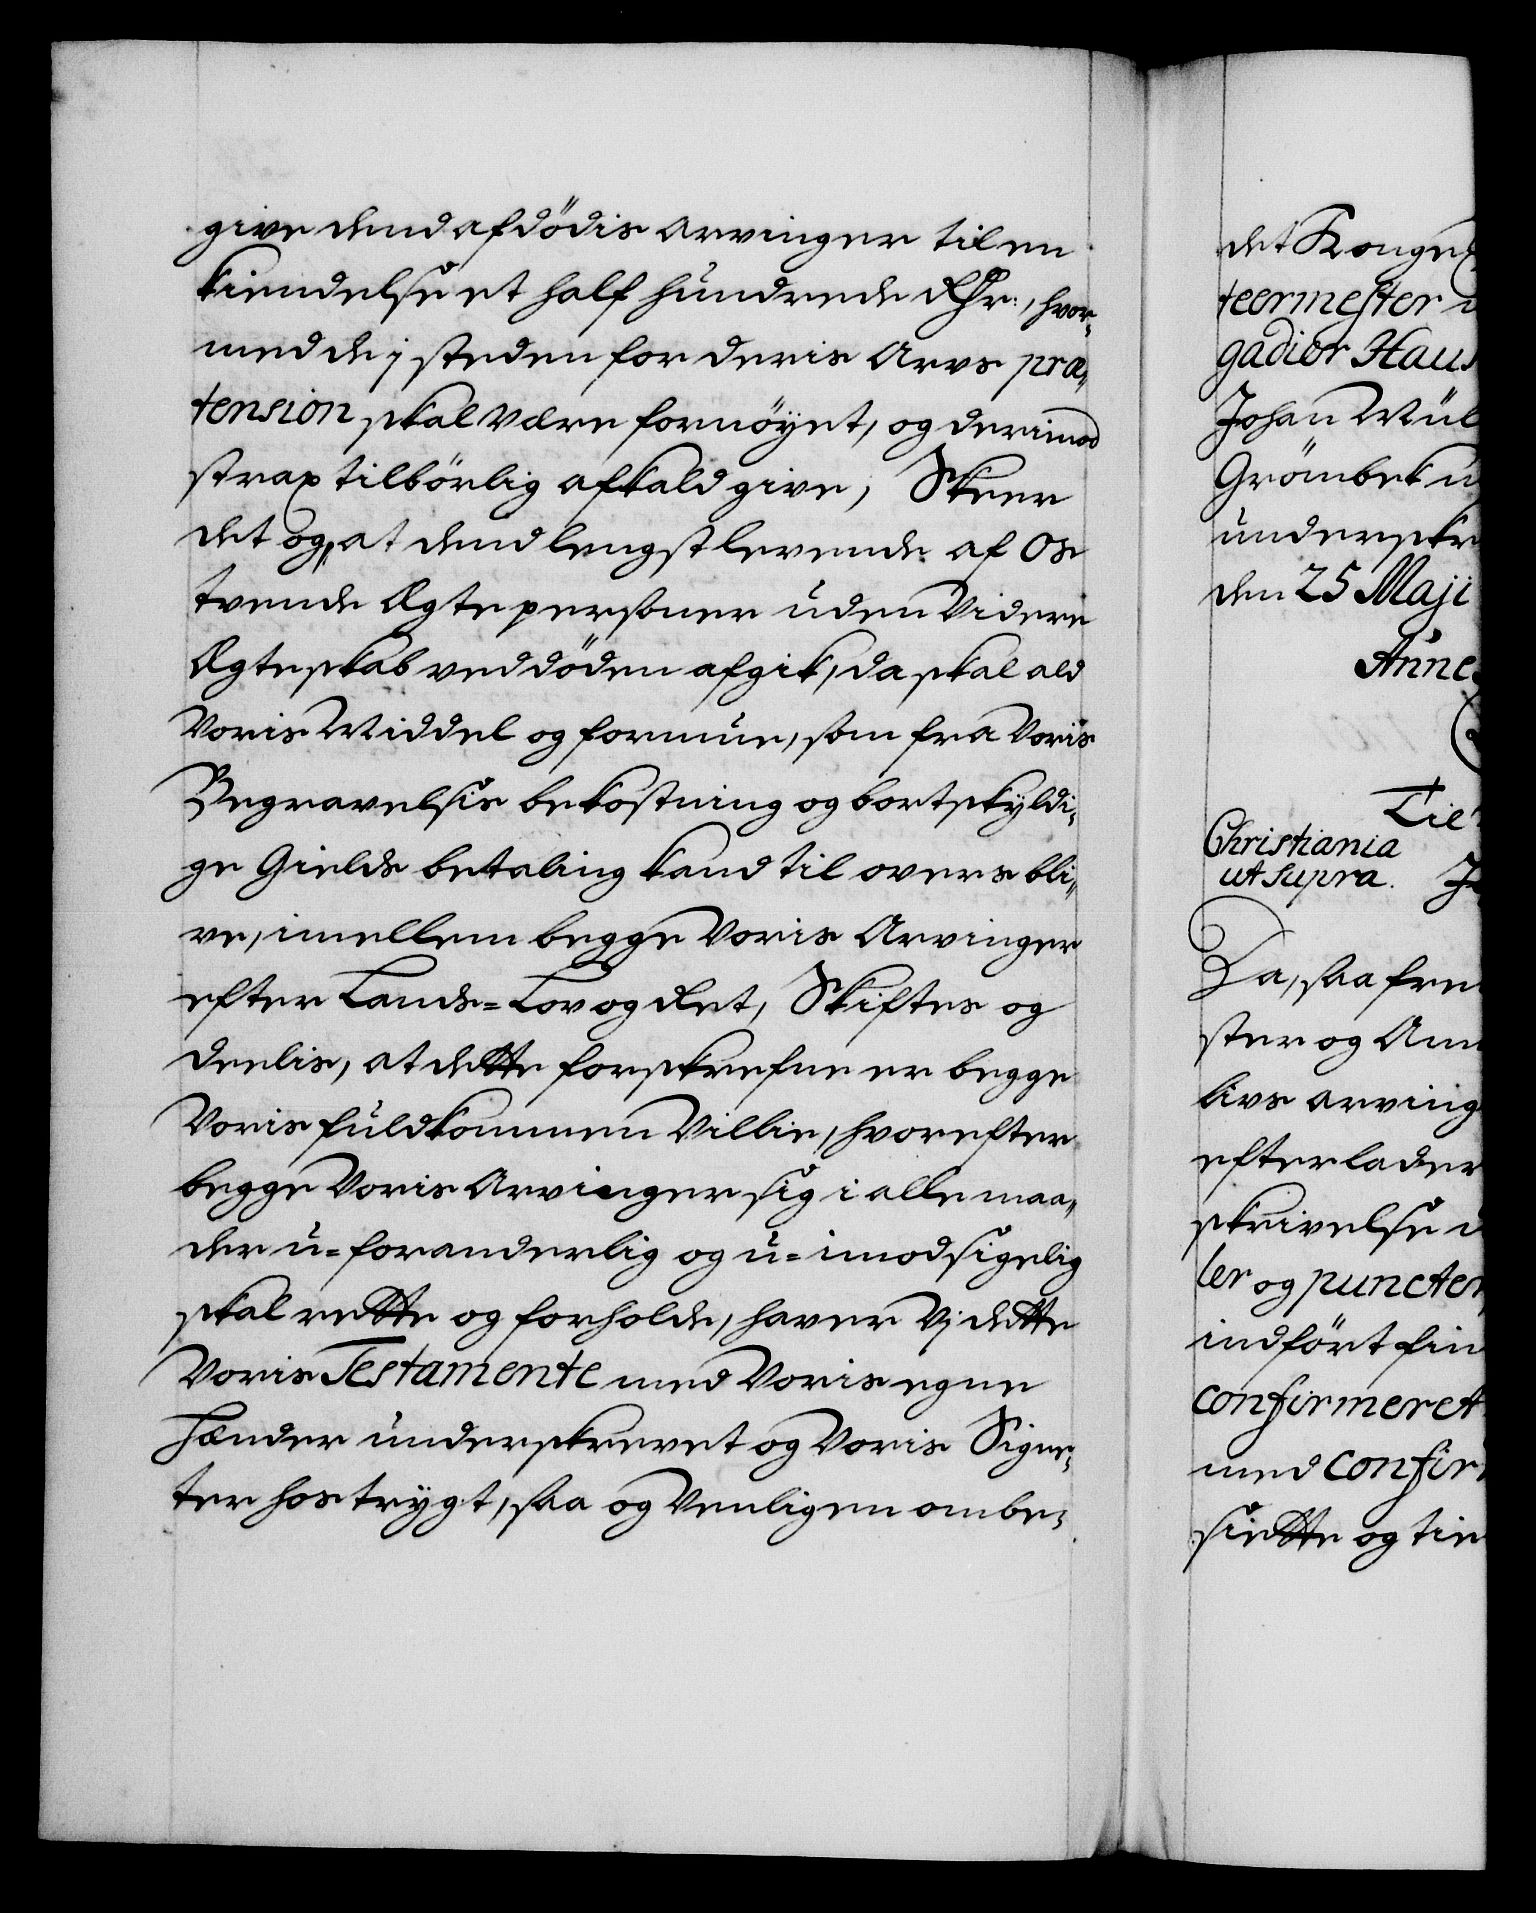 give dend afdödis arvinger til en
kiendelse et half hundrede Rdr:, hvor-
med de j steden for deris Arvs præ-
tension skal være fornöyet, og derimod
strax tilbörlig afkald give, Skeer
det og, at dend lengst levende af os
tvende Ægte personer uden Videre
Ægteskab ved döden afgik, da skal ald
Voris Middel og formue, som fra Voris
Begravelsis bekostning og bortskyldi-
ge Gields betaling kand til overs bli-
ve, imellem begge Voris Arvinger
efter Lands-Lov og Ret, Skiftes og
deelis, at dette forskrefne er begge
Voris fuldkommen Villie, hvorefter
begge Voris Arvinger sig i alle maa-
der u-foranderlig og u-imodsigelig
skal rette og forholde, haver Vj dette
Voris Testamente med Voris egne
Hænder underskrevet og Voris Signe-
ter hos trygt, saa og Venligen ombe-
det Kongel
teermester
gadier Haus
Johan Mül
Grömbek u
underskr
den 25 Maji
Anne
Christiania
ut supra.
Da, saa frem
ster og Ann
livs arving
efterlader
skrivelse
ler og puncter
indfört fin
confirmeret
med confir
siette og tie